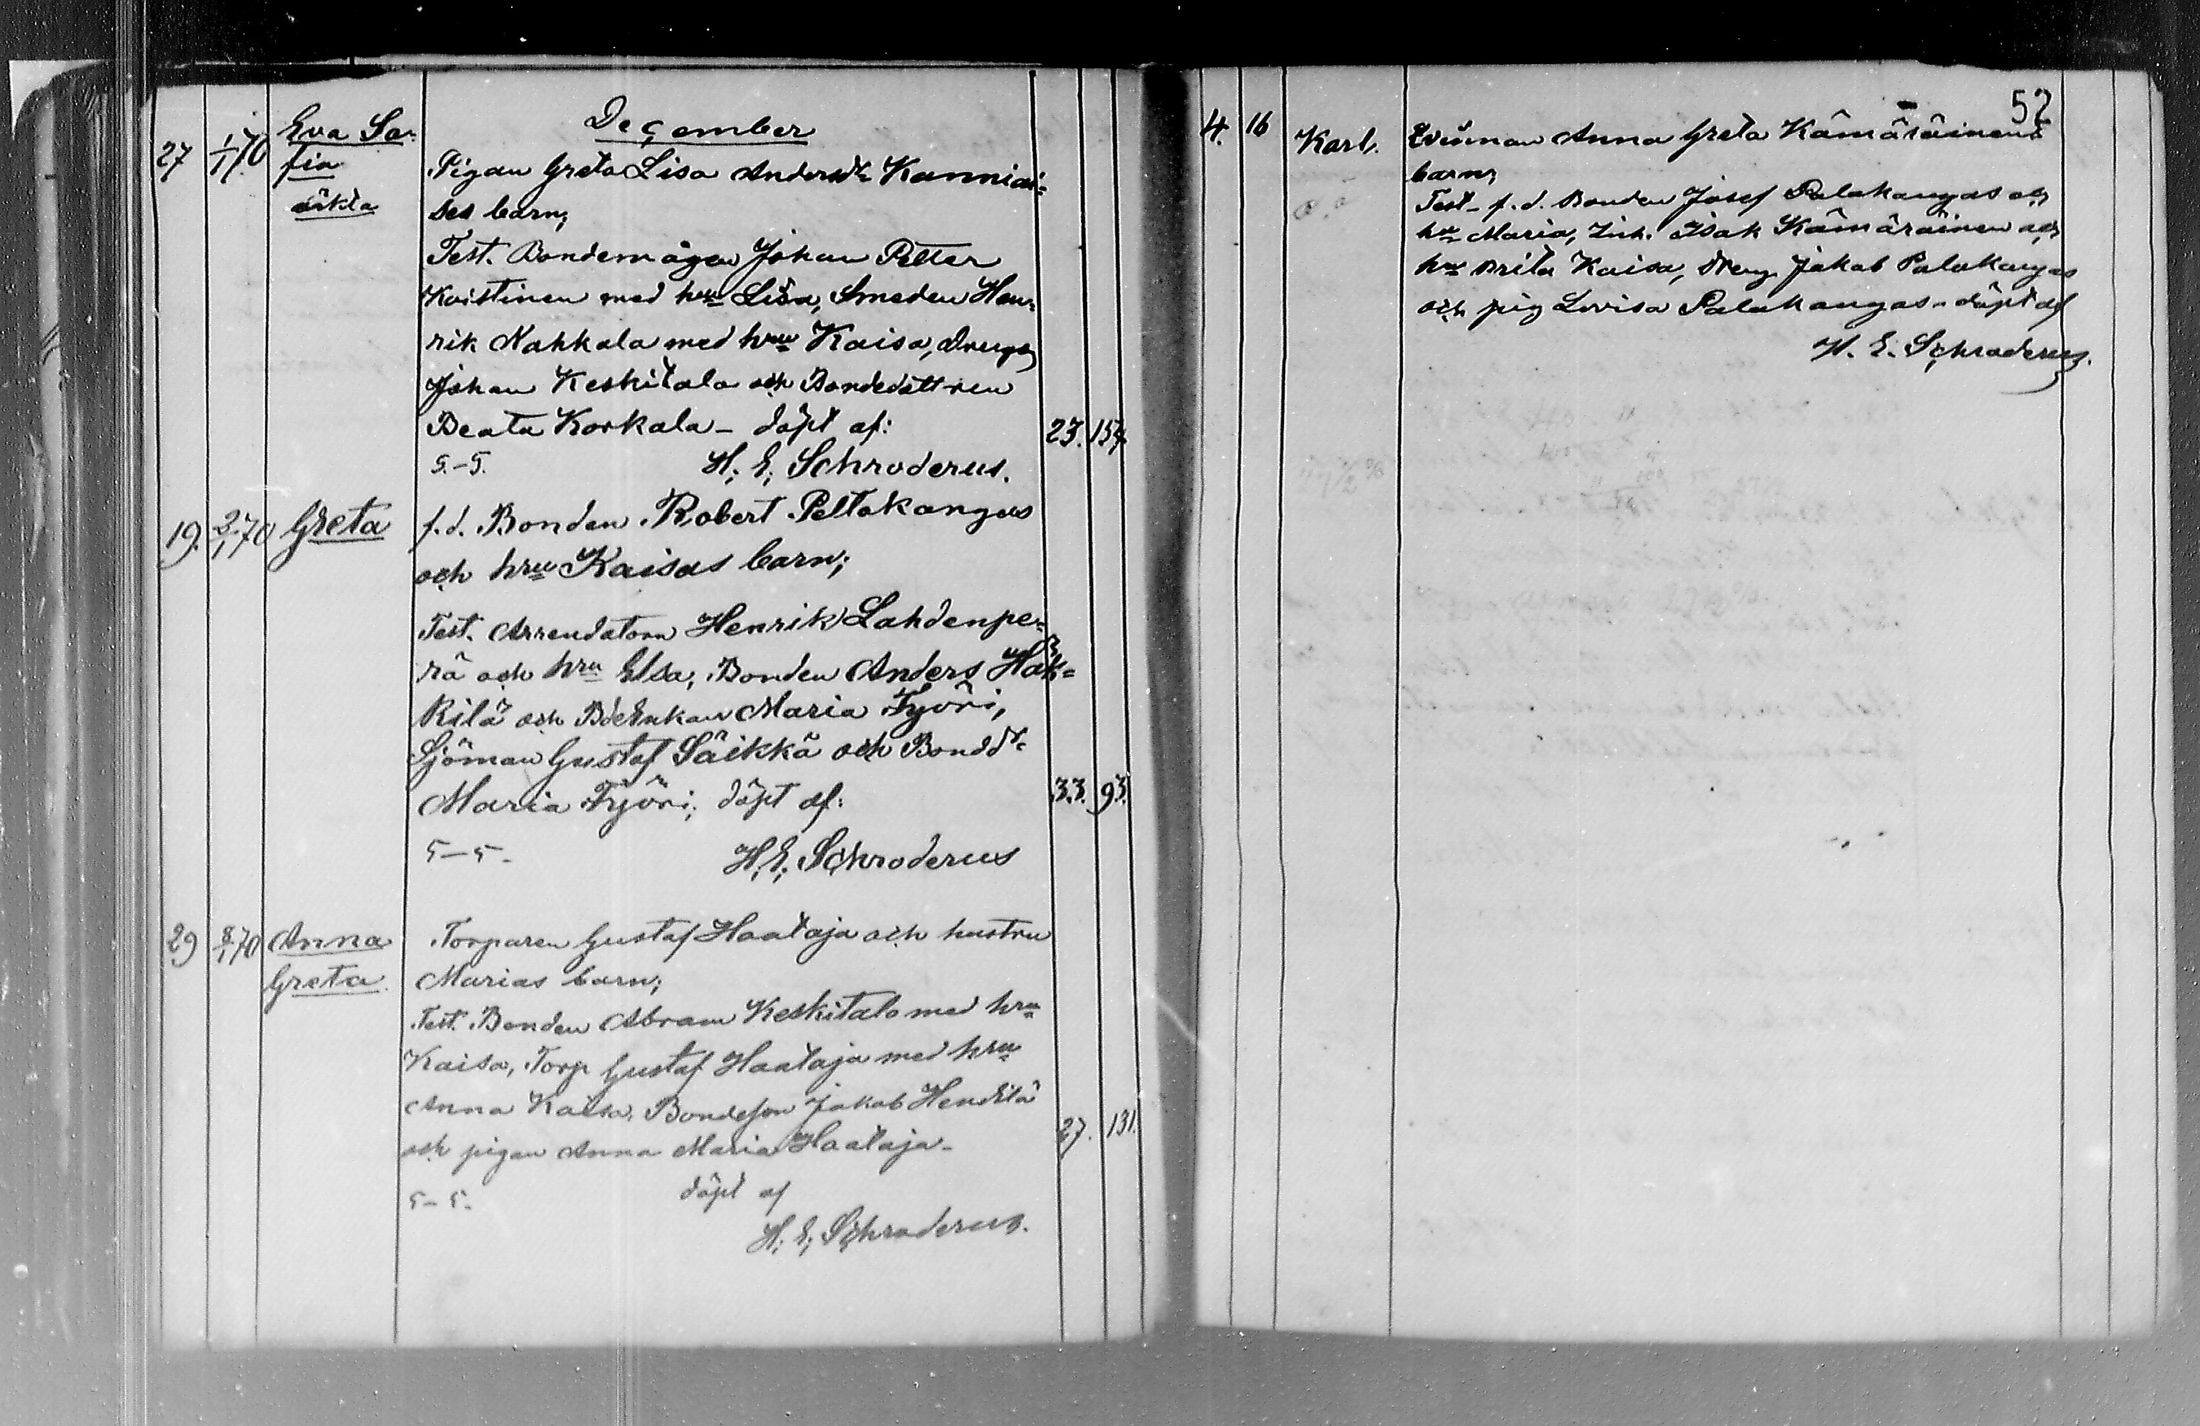 December
27 1/1 70 Eva So-
fia
oäkta
Pigan Greta Lisa Andersdr Kanniai-
ses barn;
Test. Bondemågen Johan Petter
Koistinen med hru Lisa, Smeden Hen-
rik Nahkala med hru Kaisa, Drengen
Johan Keskitalo och Bondedottren
Beata Korkala – döpt af: 23. 157.
5.–5. H. E. Schroderus.
19. 2/1 70 Greta f.d. Bonden Robert Peltokangas
och hru Kaisas barn;
Test. Arrendatorn Henrik Lahdenpe-
rä och hru Elsa, Bonden Anders Häk-
kilä och Maria Tyÿri,
Sjöman Gustaf Säikkä och Bondd
Maria Tyÿri; döpt af: 33. 93.
5–5. H. E. Schroderus
29 8/1 70 Anna
Greta
Torparen Gustaf Haataja och hustru
Marias barn;
Test. Bonden Abram Keskitalo med hru
Kaisa, Torp Gustaf Haataja med hru
Anna Kaisa, Bondeson Jakob Henelä
och pigan Anna Maria Haataja – 27. 131.
5–5. döpt af
H. E. Schroderus.
52
4. 16 Karl. Anna Greta Kämäräinens
barn;
Test – f.d. Bonden Josef Palokangas och
hu Maria, Inh. Isak Kämäräinen och
hu Brita Kaisa, Dreng. Jakob Palokangas
och pig Lovisa Palokangas – döpt af
H. E. Schroderus.